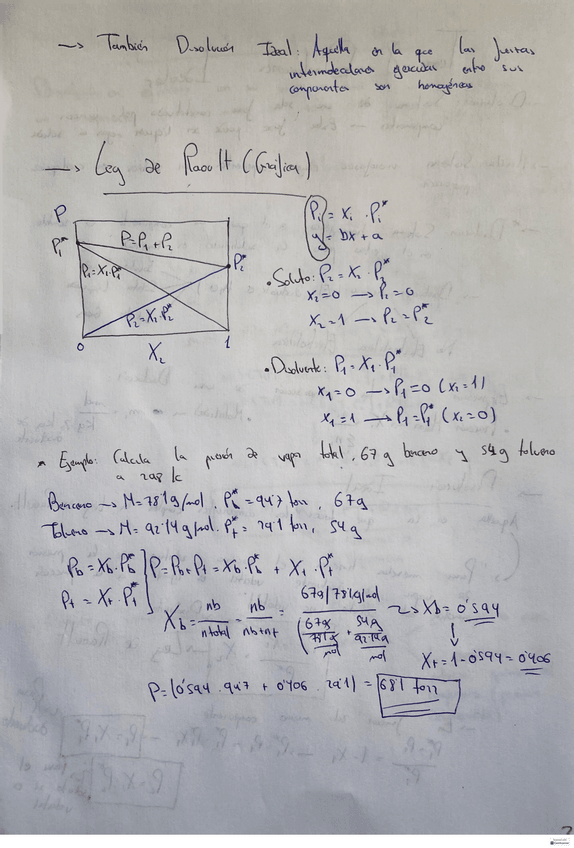 → También Disolución Ideal: Aquella en la que las fuerzas
intermoleculares ejercidas entre sus
componentes son homogéneas
→ Ley de Raoult (Gráfica)
P
P₁*
P=P₁+P₂
P₁=X₁·P₁*
P₂=X₂·P₂*
P₂*
0
X₂
1
P₁ = X₁ · P₁*
y = bx + a
• Soluto: P₂ = X₂ · P₂*
X₂=0 → P₂=0
X₂=1 → P₂=P₂*
• Disolvente: P₁=X₁·P₁*
X₁=0 → P₁=0 (X₂=1)
X₁=1 → P₁=P₁* (X₂=0)
* Ejemplo: Calcula la presión de vapor total, 67 g benceno y 54 g tolueno
a 298 K
Benceno → M=78'1 g/mol. Pb*=94'7 torr, 67g
Tolueno → M=92'14 g/mol. Pt*=29'1 torr, 54g
Pb=Xb·Pb*
Pt=Xt·Pt*
P=Pb+Pt=Xb·Pb* + Xt·Pt*
Xb = nb/ntotal = nb/(nb+nt) = (67g/78'1g/mol)/(67g/78'1 g/mol + 54g/92'14 g/mol) → Xb=0'594
↓
Xt=1-0'594=0'406
P=(0'594 · 94'7 + 0'406 · 29'1) = 68'1 torr